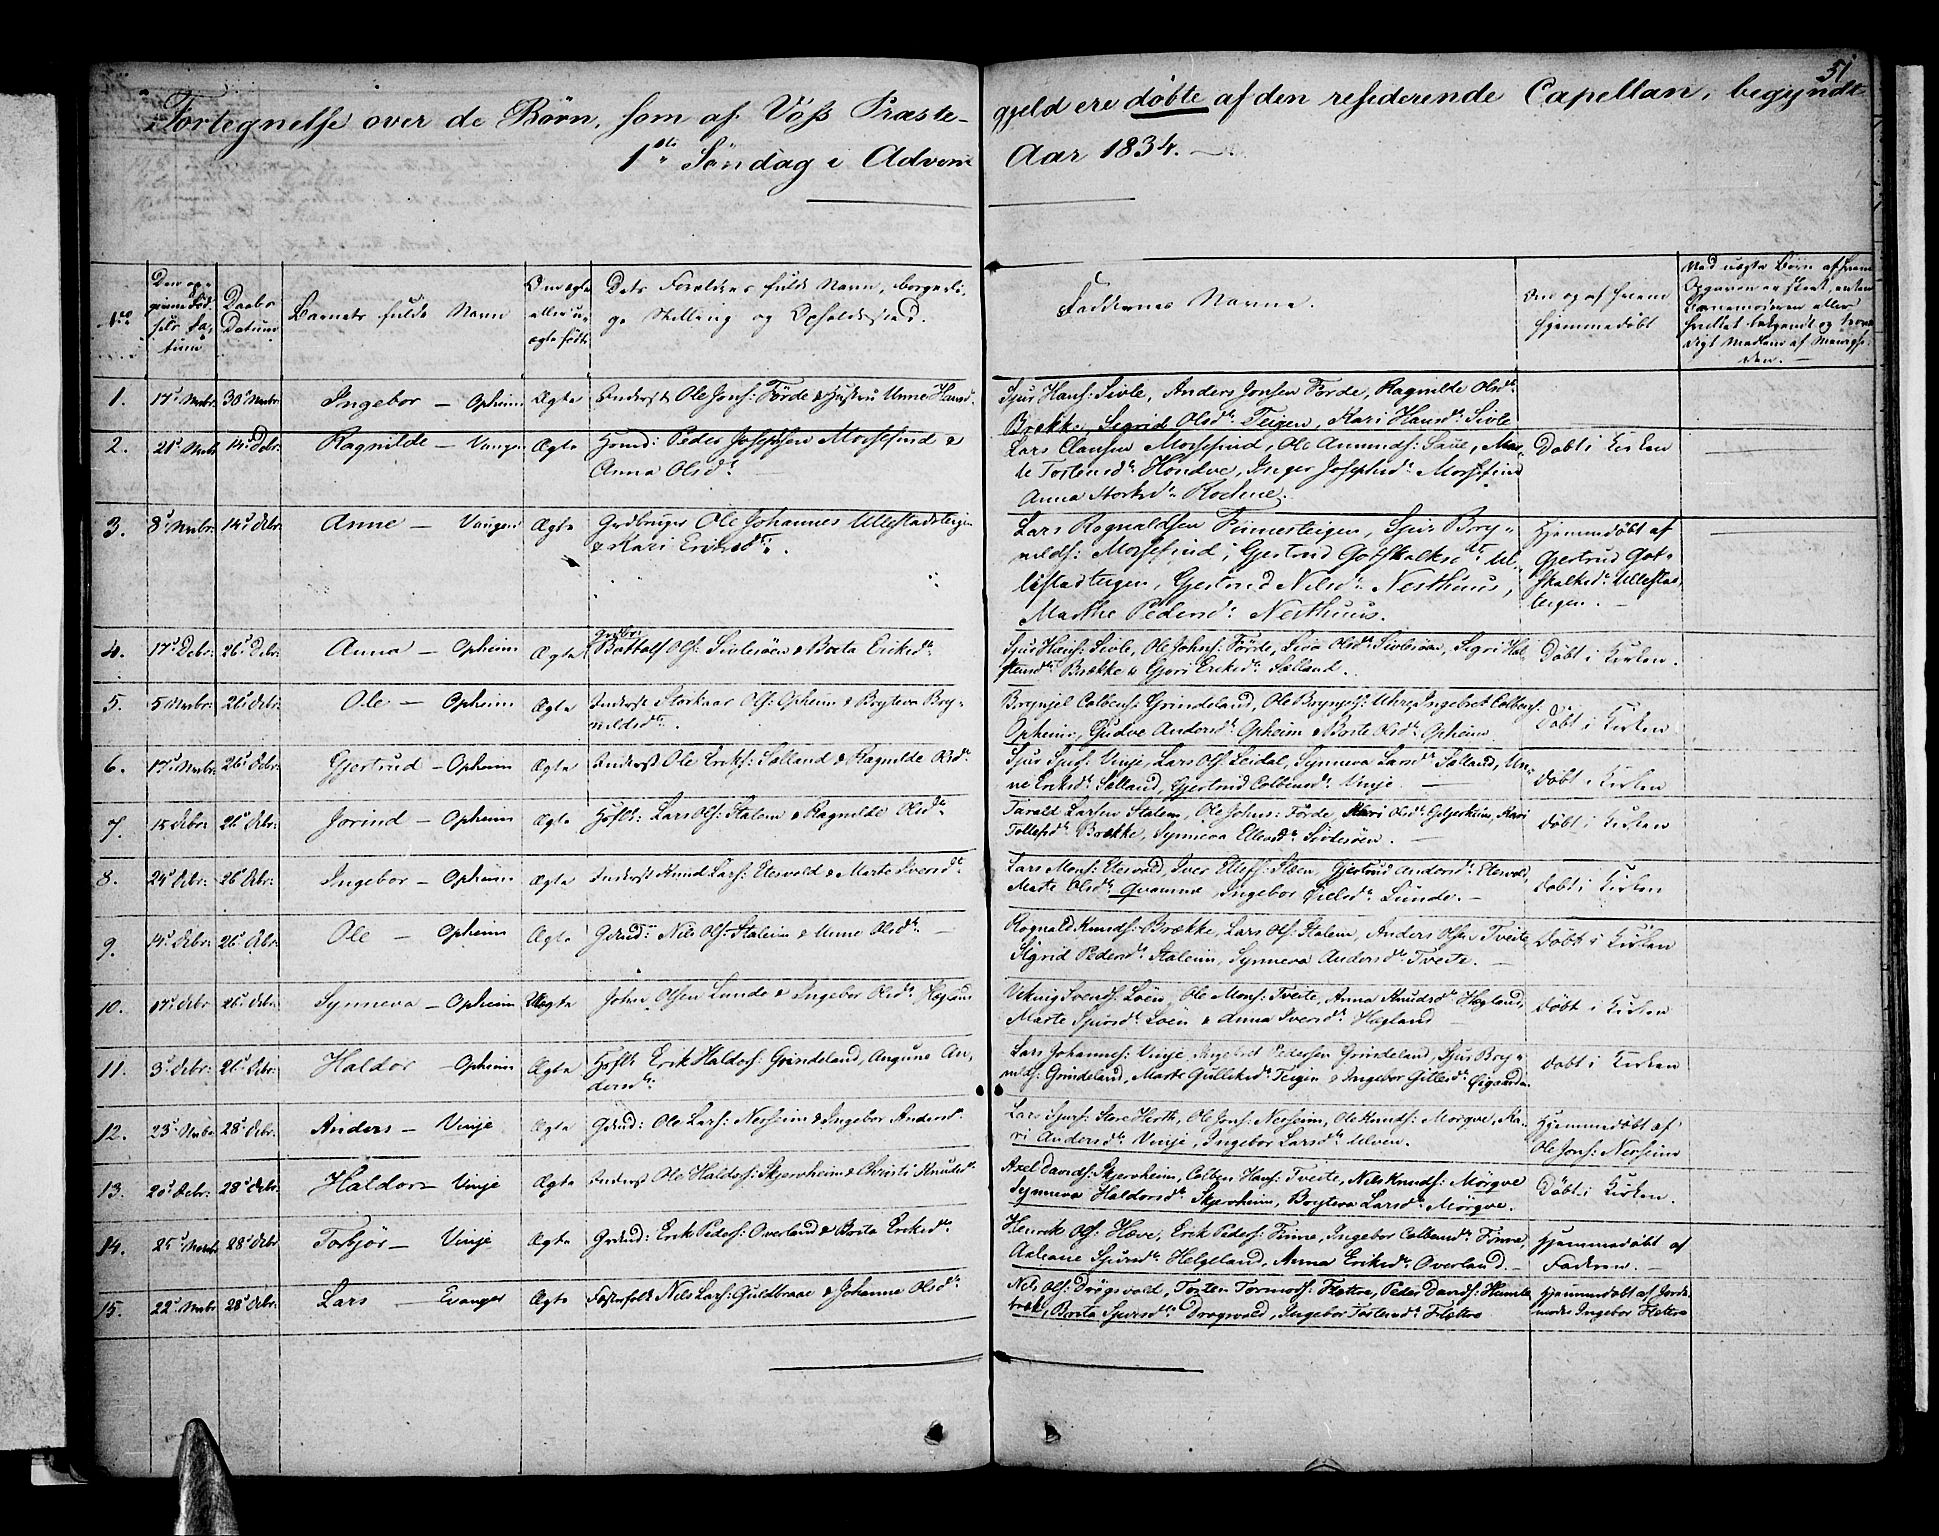 51
Fortegnelse over de Børn, som af Voss Præste-
gjeld ere døbte af den residerende Capellan, begyndt
1ste Søndag i Advent
Aar 1834.
No
Den op-
givne Fød-
sels Da-
tum
Daabs
Datum
Barnets fulde Navn
Om ægte
eller u-
ægte født
Dets Forældres fulde Navn, borgerli-
ge Stilling og Opholdssted.
Faddernes Navne.
Om og af hvem
hjemmedøbt
Ved uægte Børn af hvem
Opgaven er skeet, enten
Barnemoderen eller
hvilket bekjendt og trovær-
digt Medlem af Menighe-
den.
1. 17de Novbr 30te Novbr Ingebor – Opheim Ægte Inderst Ole Jons: Förde & Hustru Unne Hansd.
Sjur Hans: Sivle, Anders Jonsen Förde, Ragnilde Olsdtr
Brække, Sigrid Olsdtr Teigen, Kari Hansdtr Sivle
2. 21de Novbr 14de Debr: Ragnilde – Vangen Ægte Huusmd: Peder Josephsen Mossefind &
Anna Olsdtr
Lars Clausen Mossefind, Ole Anunds: Saue, Mar-
te Torbensdtr Hondve, Inger Josephsdtr Mossefind
Anna Storksdtr Rochne
Døbt i Kirken
3. 8de Novbr: 14de Debr: Anne – Vangen Ægte Grdbruger Ole Johannes Ullestadteigen
& Kari Eriksdtr.
Lars Rognaldsen Finnesteigen, Sjur Bry-
nilds: Mossefind, Gjertrud Gotskalksdtr Ul-
lestadteigen, Gjertrud Nilsdtr Nesthuus,
Marthe Pedersdtr Nesthuus.
Hjemmedøbt af
Gjertrud Got-
skalksdtr Ullestad-
teigen.
4. 17de Debr: 26de Debr: Anna – Opheim Ægte Grdbr: Bottolf Ols: Sivlesöen & Brita Eriksdtr
Sjur Hans: Sivle, Ole Johns: Förde, Liva Olsdtr Sivlesöen, Sigri Hal-
stensdtr Brække & Gjori Eriksdtr Sælland.
Døbt i Kirken.
5. 5 Novbr: 26de Debr: Ole – Opheim Ægte Inderst Storkaar Ols: Opheim & Bryteva Bry-
nildsdtr.
Brynjel Colbens: Grindeland, Ole Brynjels: Uhre, Ingebret Colbens:
Opheim, Gudve Andersdtr Opheim & Brite Olsdtr Opheim
Døbt i Kirken
6. 17de Novbr: 26de Debr: Gjertrud – Opheim Ægte Inderst Ole Eriks: Sælland & Ragnilde Olsdtr
Sjur Sjurs: Vinje, Lars Ols: Leidal, Synneva Larsdtr Sælland, Un-
ne Eriksdtr Sælland, Gjertrud Colbensdtr Vinje
Døbt i Kirken
7. 15 Debr: 26de Debr: Jorind – Opheim Ægte Hosfk: Lars Ols: Stalem & Ragnilde Olsdtr
Tarald Larsen Stalem, Ole Johns: Förde, Kari Olsdtr Gjerheim, Kari
Tollefsdtr Brække, Synneva Ellensdtr Sivlesöen.
Døbt i Kirken
8. 24de Debr: 26de Debr: Ingebor – Opheim Ægte Inderst Knud Lars: Elesvold & Marte Iversdtr
Lars Mons: Elesvold, Iver Ellefs: Steen, Gjertrud Andersdtr Elesvold,
Marte Olsdtr Qvamme, Ingebor Olsdtr Lunde.
Døbt i Kirken
9. 14de Debr: 26de Debr: Ole – Opheim Ægte Grmd: Nils Ols: Staleim & Unne Olsdtr
Rognald Knuds: Brække, Lars Ols: Stalem, Anders Olsen Tveite,
Sigrid Pedersdtr Staleim, Synneva Andersdtr Tveite.
Døbt i Kirken
10. 17de Debr 26de Debr: Synneva – Opheim Uægte Johan Olsen Lunde & Ingebor Olsdtr Hægland
Viking Svends: Löen, Ole Mons: Tveite, Anna Knudsdtr Hægland,
Marte Sjursdtr Löen & Anna Iversdtr Hægland
Døbt i Kirken
11. 3de Debr: 26de Debr: Haldor – Opheim Ægte Hosfk Erik Haldors: Grindeland, Angune An-
dersdtr:
Lars Johannes: Vinje, Ingebret Pedersen Grindeland, Sjur Bry-
nilds: Grindeland, Marte Gulleksdtr Teigen & Ingebor Gittlesdtr Øigarden
Døbt i Kirken
12. 23de Novbr 28de Debr: Anders – Vinje Ægte Grmd: Ole Lars: Nersheim & Ingebor Andersd.
Lars Sjurs: Store Herth, Ole Jons: Nersheim, Ole Knuds: Mørqve, Ka-
ri Andersdtr Vinje, Ingebor Larsdtr Ulven.
Hjemmedøbt af
Ole Jons: Nersheim
13. 20de Debr: 28de Debr: Haldor – Vinje Ægte Inderst Ole Haldors: Skjerveheim & Christi Knudsd.
Axel Davids: Skjerveheim, Colben Hans: Tveite, Nils Knuds: Mørqve
Synneva Haldorsdtr Skjerveheim, Brytteva Larsdtr Mørqve.
Døbt i Kirken.
14. 25de Novbr 28de Debr Torbjør – Vinje Ægte Grmd: Erik Peders: Overland & Brita Eriksdtr
Henrik Ols: Hæve, Erik Peders: Finne, Ingebor Colbensdtr Finne,
Aaleane Sjursdtr Helgeland, Anna Eriksdtr Overland.
Hjemmedøbt af
Faderen.
15. 22de Novbr 28de Debr: Lars – Evanger Ægte Føsterfolk Nils Lars: Guldbraae & Johanne Olsdtr
Nils Ols: Drøgsvold, Torsten Tormods: Flettre, Peder Davids: Hamle-
bræk, Brita Sjursdtr Drøgsvold, Ingebor Torstensdtr Flettre
Hjemmedøbt af Jorde-
moder Ingebor Flettre